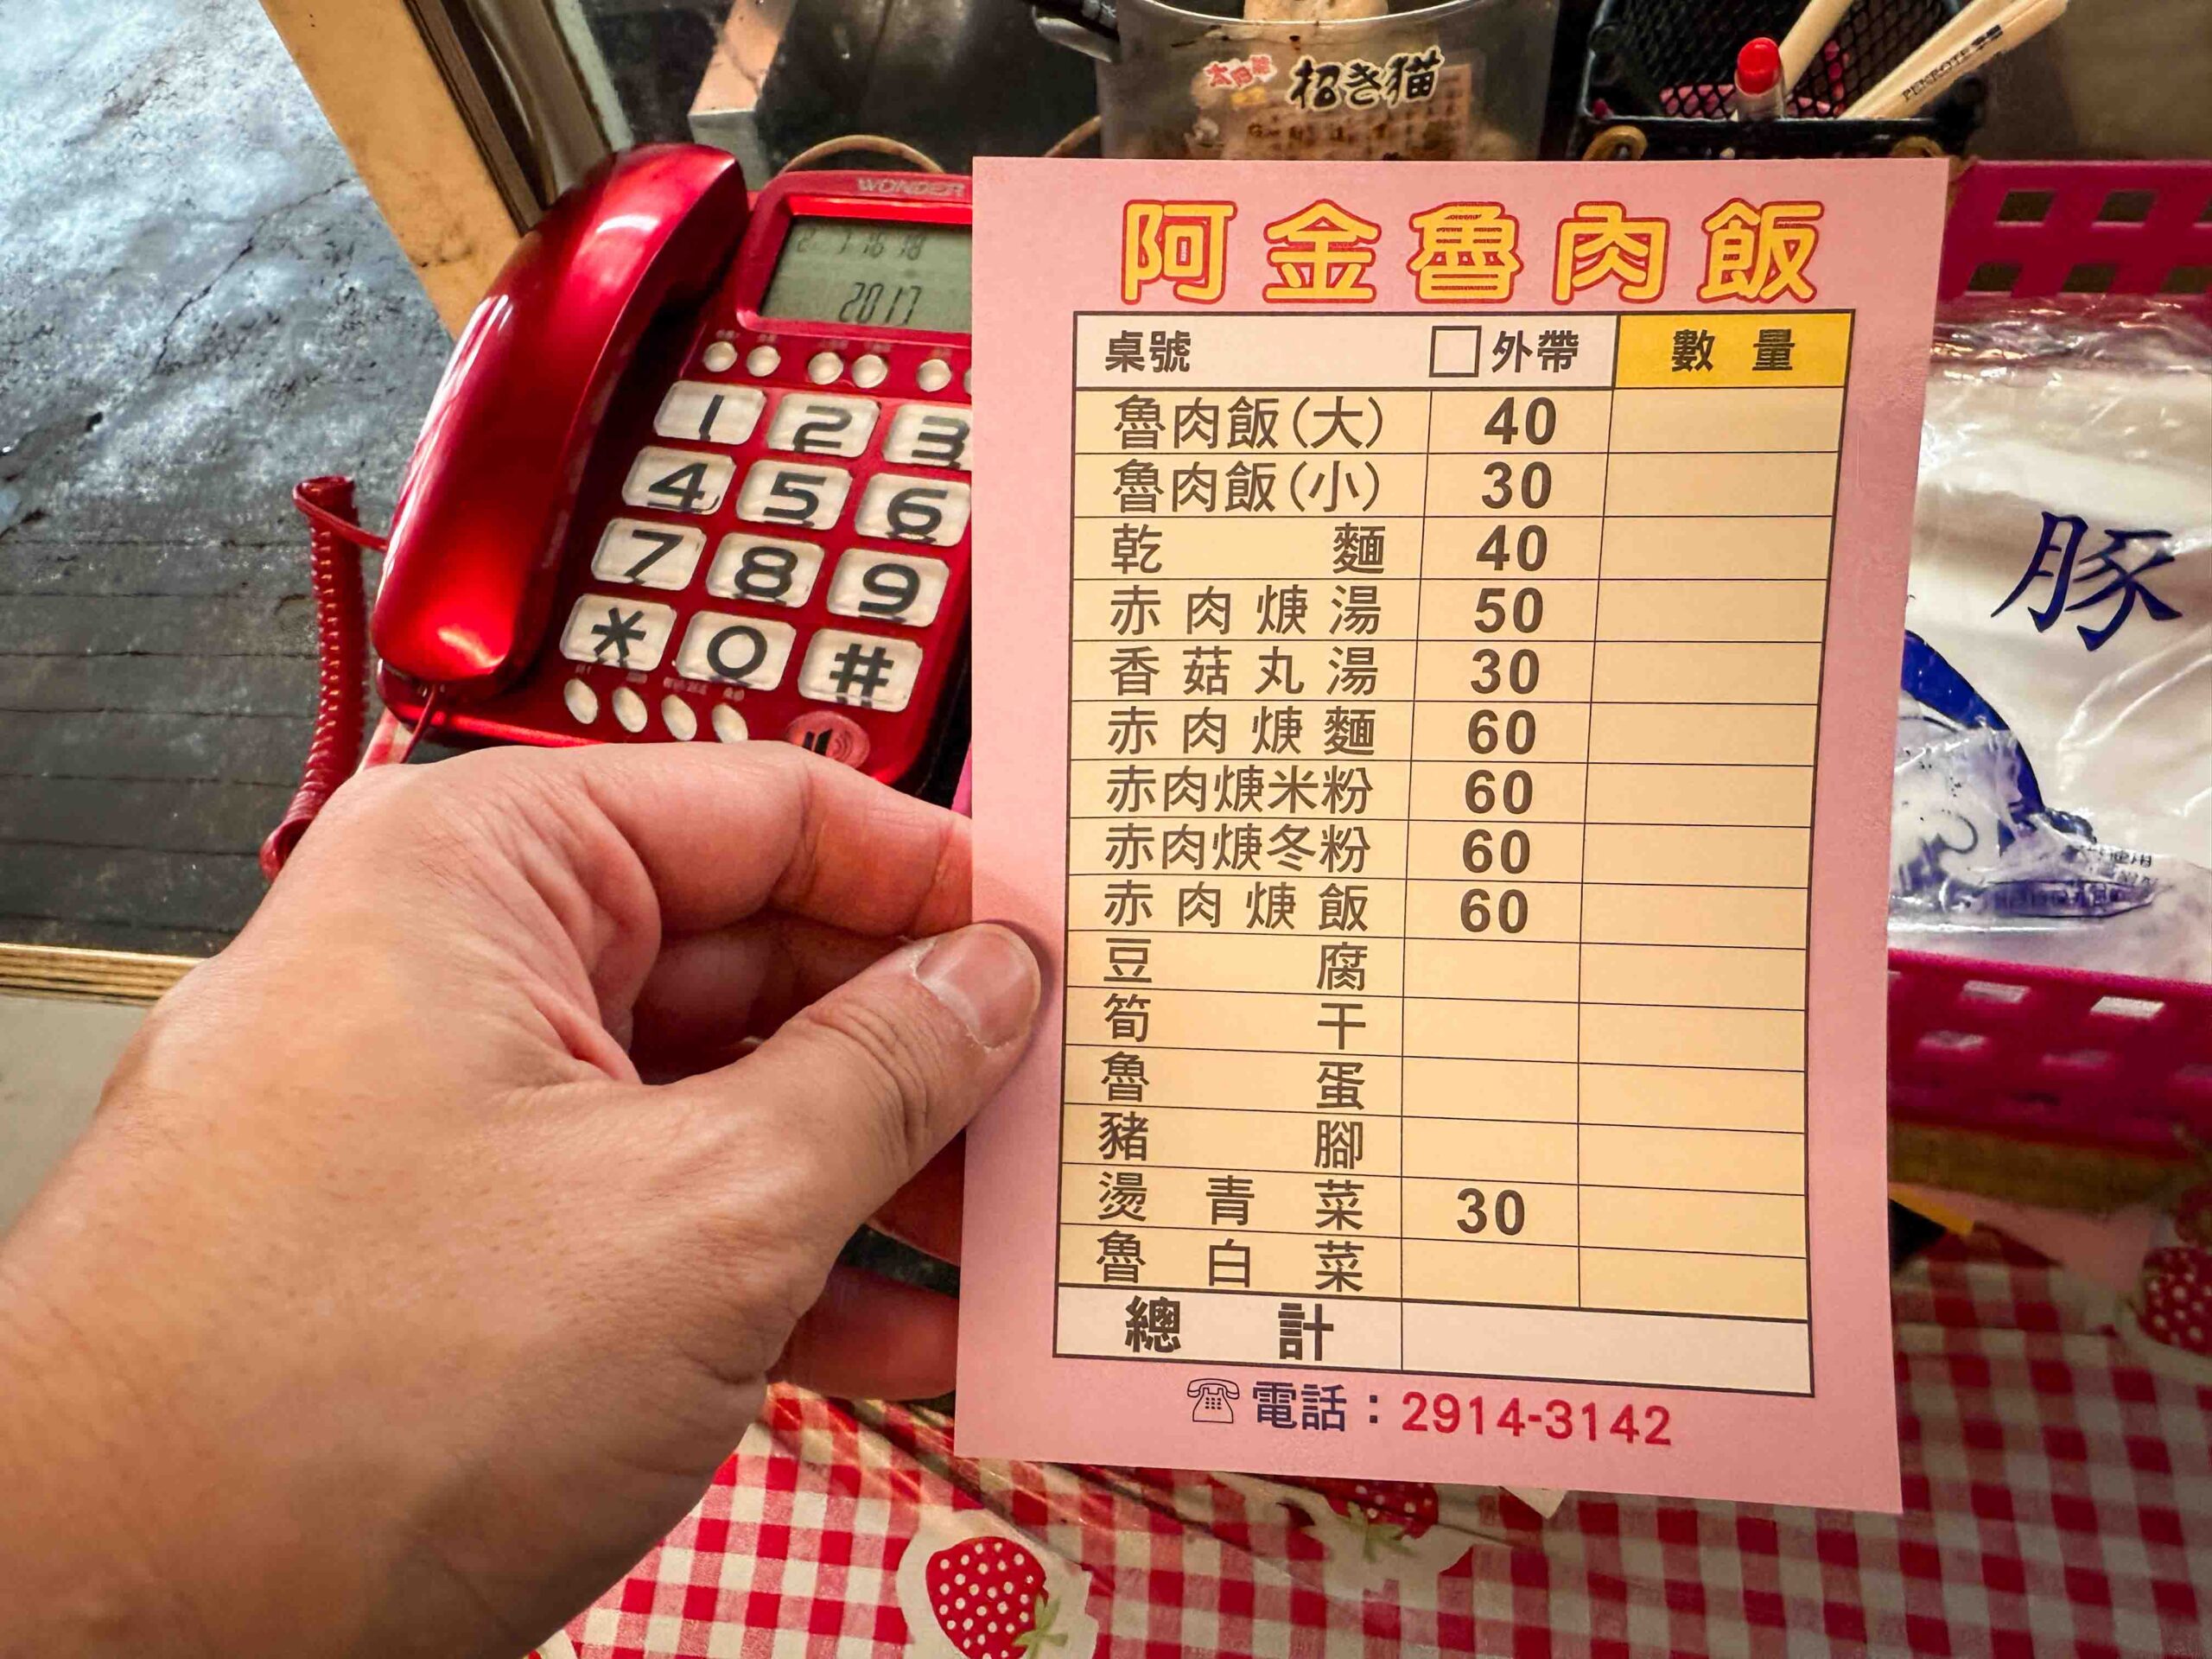 招き猫
WONDER
2017
1 2 3
4 5 6
7 8 9
* 0 #
阿金魯肉飯
桌號 □外帶 數量
魯肉飯(大) 40
魯肉飯(小) 30
乾麵 40
赤肉焿湯 50
香菇丸湯 30
赤肉焿麵 60
赤肉焿米粉 60
赤肉焿冬粉 60
赤肉焿飯 60
豆腐
筍干
魯蛋
豬腳
燙青菜 30
魯白菜
總計
電話：2914-3142
豚